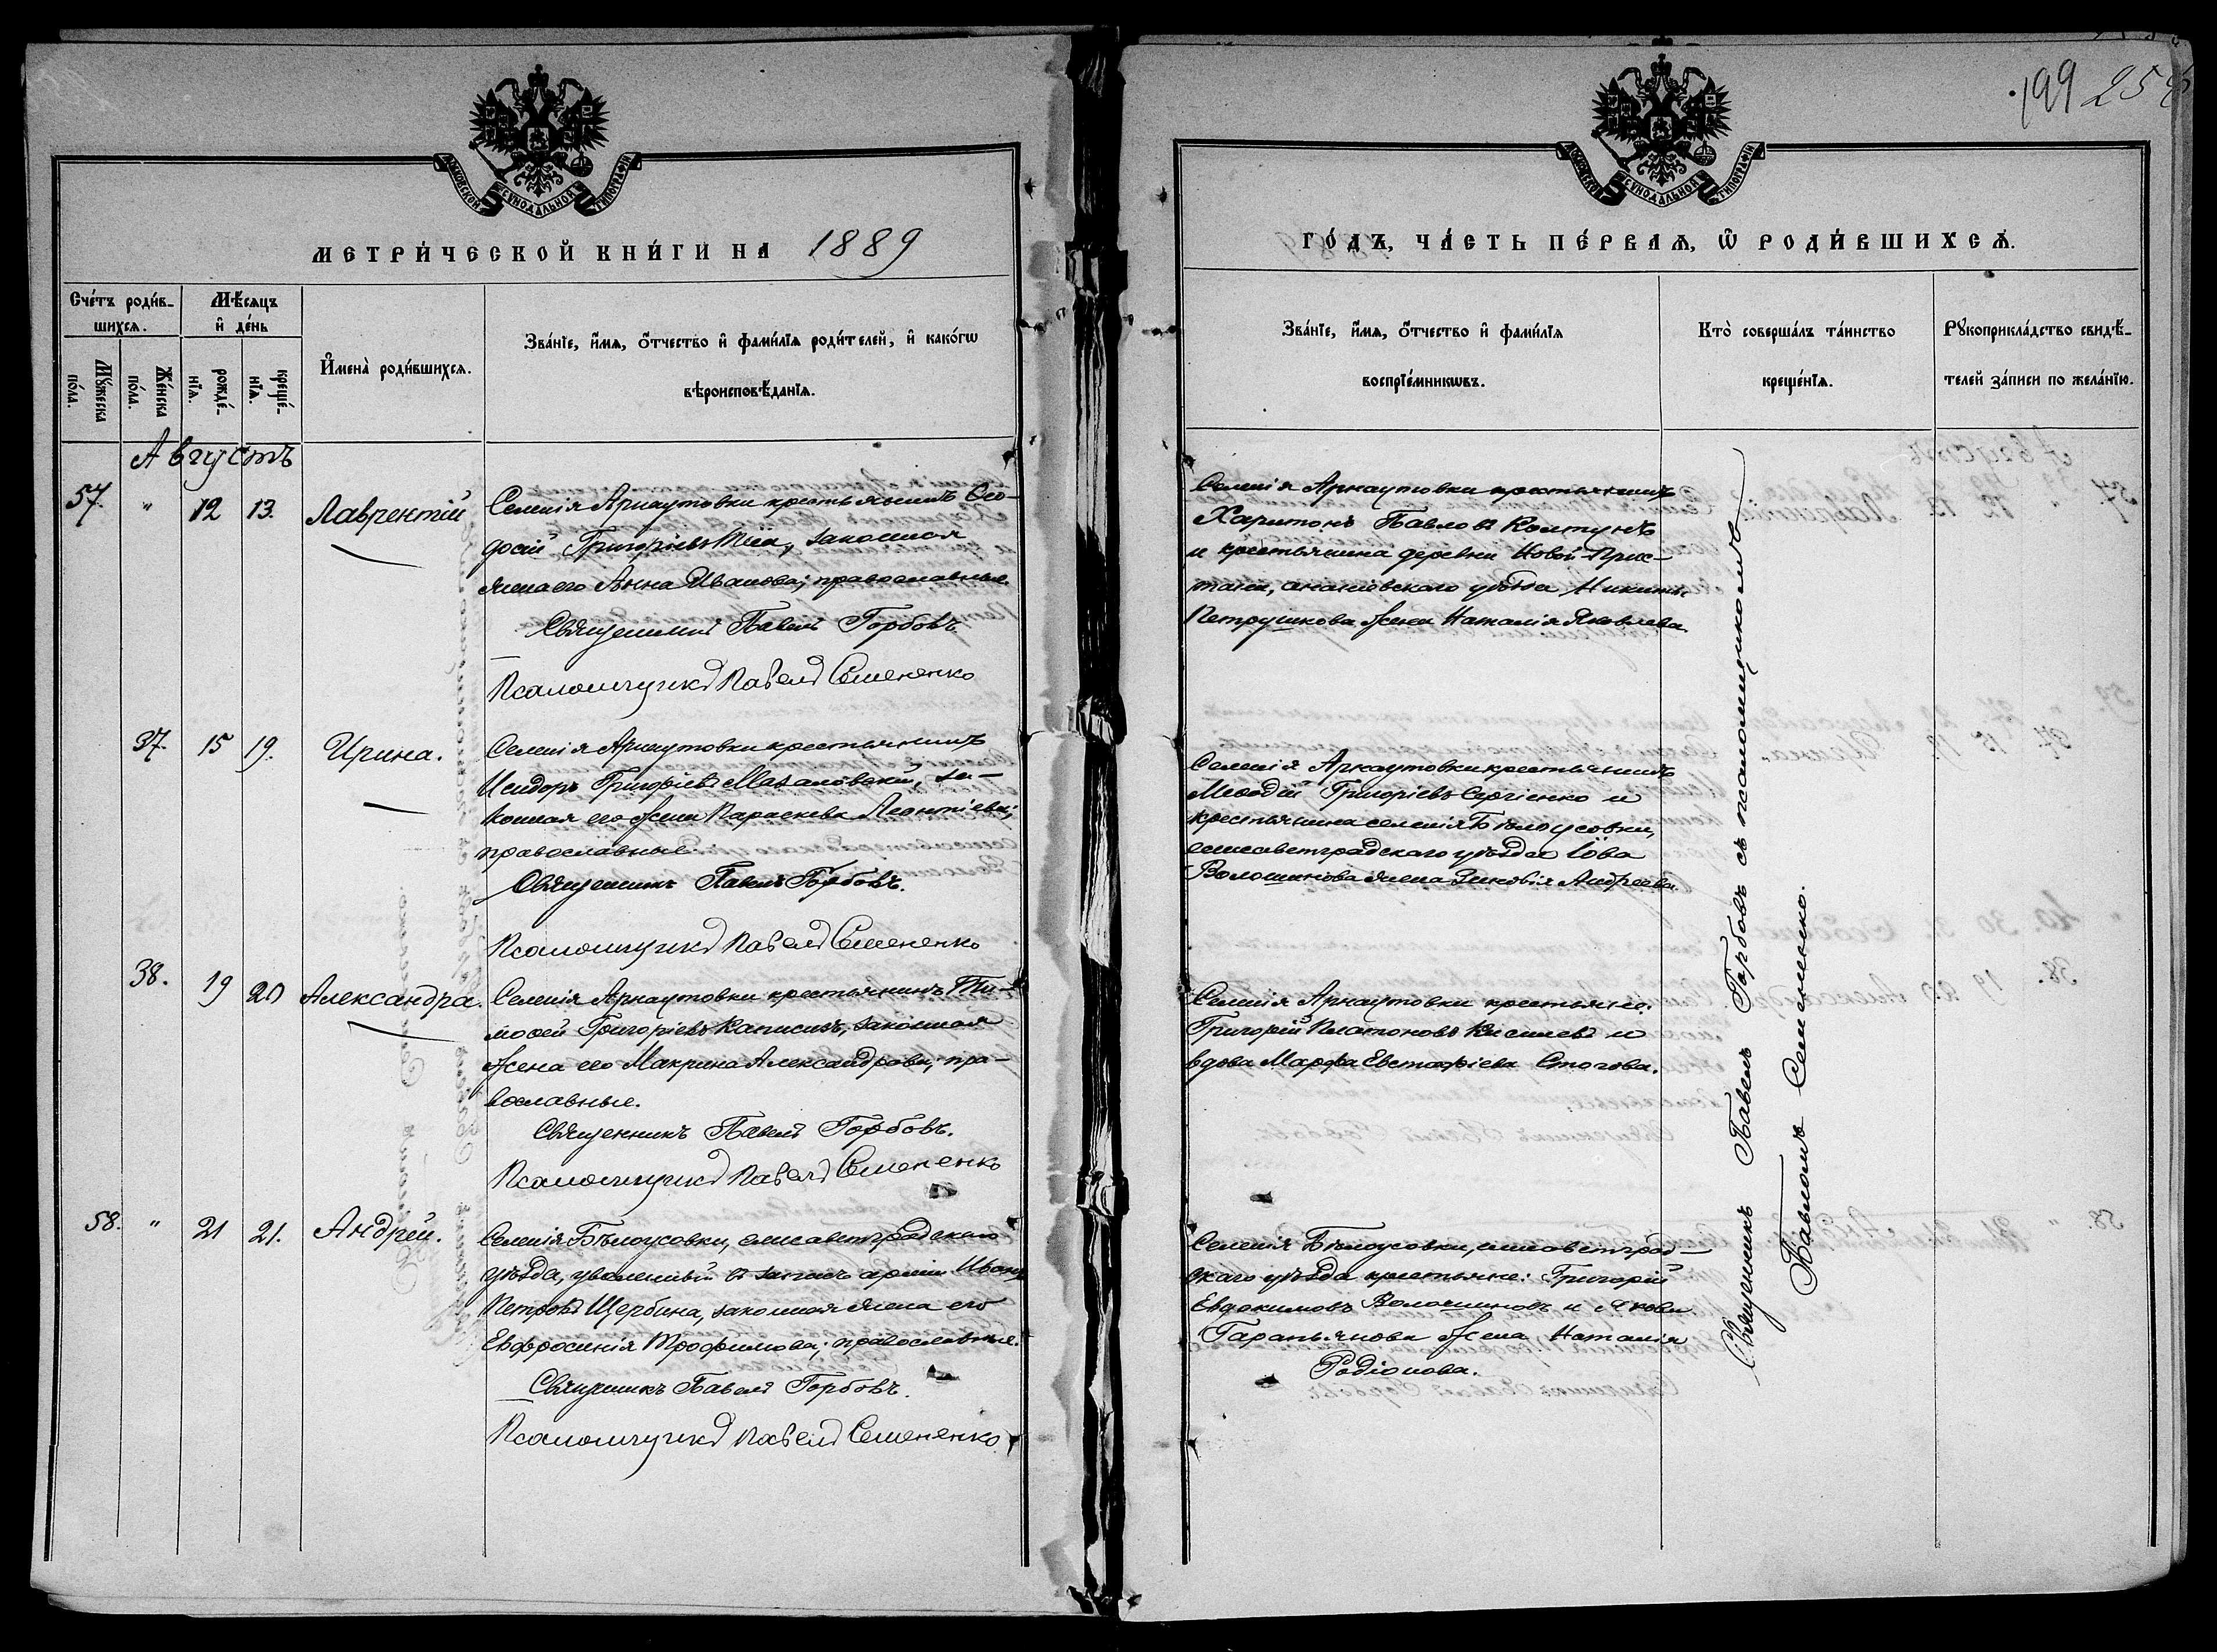 МОСКОВСКОЙ СѴНОДАЛЬНОЙ ТИПОГРАФІИ
МЕТРИ́ЧЕСКОЙ КНИ́ГИ НА 1889
Сче́тъ роди́в-
шихсѧ.
Мѣ́сѧцъ
и҆ де́нь
Мꙋ́жеска
по́ла.
Же́нска
по́ла.
рожде́-
нїѧ.
креще́-
нїѧ.
И҆мена̀ роди́вшихсѧ.
Зва́нїе, и҆́мѧ, ѻ҆́тчество и҆ фами́лїѧ роди́телей, и҆ како́гѡ
вѣроисповѣ́данїѧ.
Августъ
57. " 12 13. Лаврентій
Селенія Арнаутовки крестьянинъ Ѳео-
досій Григорьевъ законная
жена его Анна Иванова; православные.
Священникъ Павелъ Горбовъ.
Псаломщикъ Павелъ Семененко
37. 15 19. Ирина.
Селенія Арнаутовки крестьянинъ
Исидоръ Григорьевъ Мазаловскій, за-
конная его жена Параскева Леонтіева;
православные.
Священникъ Павелъ Горбовъ.
Псаломщикъ Павелъ Семененко
38. 19 20 Александра.
Селенія Арнаутовки крестьянинъ Ти-
моѳей Григорьевъ законная
жена его Макрина Александрова; пра-
вославные.
Священникъ Павелъ Горбовъ.
Псаломщикъ Павелъ Семененко
58. " 21 21. Андрей.
Селенія Бѣлоусовки, елисаветградскаго
уѣзда, уволенный въ запасъ арміи Иванъ
Петровъ Щербина, законная жена его
Евфросинія Трофимова; православные.
Священникъ Павелъ Горбовъ.
Псаломщикъ Павелъ Семененко
199 25
МОСКОВСКОЙ СѴНОДАЛЬНОЙ ТИПОГРАФІИ
ГО́ДЪ, ЧА́СТЬ ПЕ́РВАѦ, Ѡ҆ РОДИ́ВШИХСѦ.
Зва́нїе, и҆́мѧ, ѻ҆́тчество и҆ фами́лїѧ
воспрїе́мникѡвъ.
Кто̀ соверша́лъ та́инство
креще́нїѧ.
Рꙋкоприкла́дство свидѣ́-
телей за́писи по жела́нїю.
Селенія Арнаутовки крестьянинъ
Харитонъ Павловъ Колтунъ
и крестьянина деревни Новой-Прис-
тани, ананіевскаго уѣзда Никиты
Петрушкова жена Наталія Яковлева.
Селенія Арнаутовки крестьянинъ
Меѳодій Григорьевъ Сергіенко и
крестьянина селенія Бѣлоусовки,
елисаветградскаго уѣзда Іова
Волошинова жена Зиновія Андреева.
Селенія Арнаутовки крестьяне:
Григорій Платоновъ Киселевъ и
вдова Марѳа Евстафіева Стогова.
Селенія Бѣлоусовки, елисаветград-
скаго уѣзда крестьяне: Григорій
Евдокимовъ Волошиновъ и Якова
Гараньянова жена Наталія
Родіонова.
Священникъ Павелъ Горбовъ съ псаломщикомъ
Павломъ Семененко.